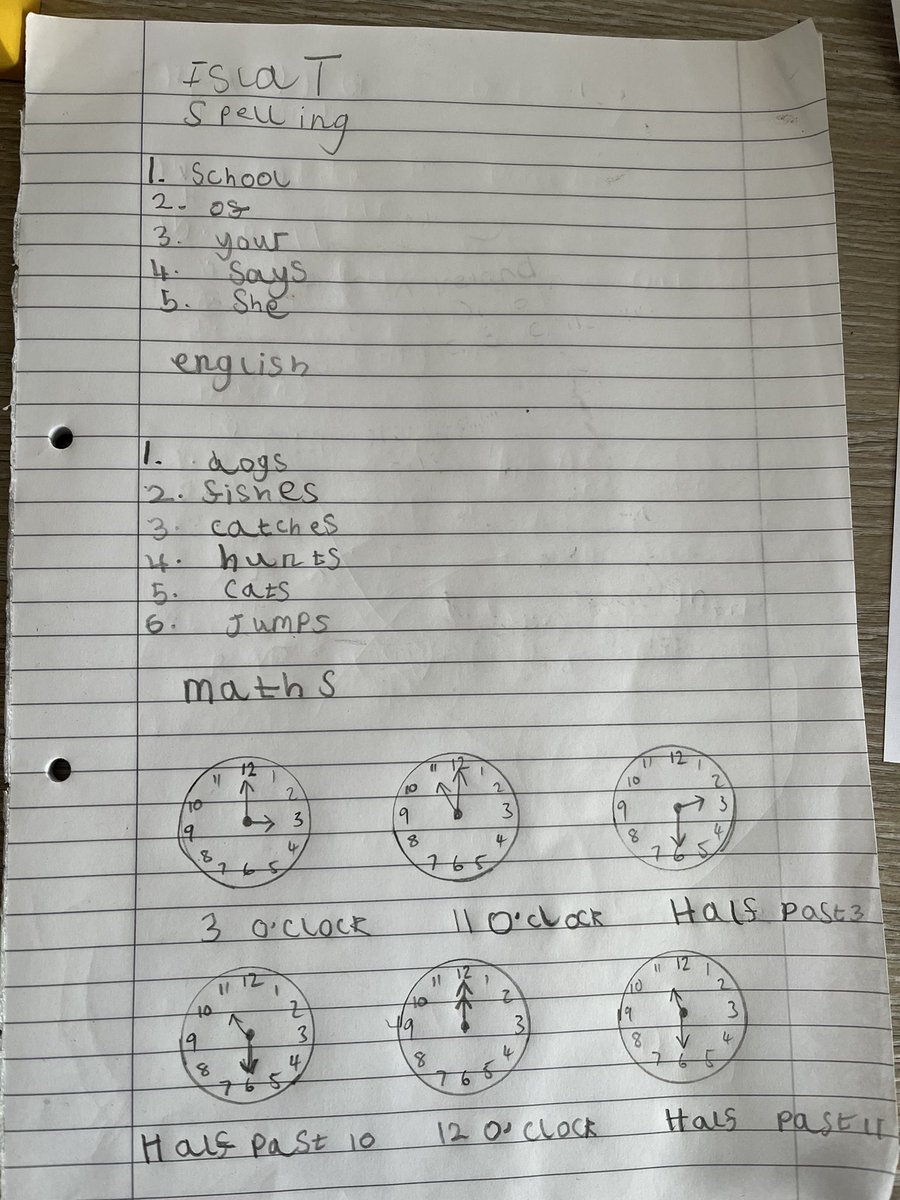 Isla T
Spelling
1. School
2. of
3. your
4. says
5. She
english
1. dogs
2. fishes
3. catches
4. hunts
5. cats
6. Jumps
maths
12 1 2 3 4 5 6 7 8 9 10 11
12 1 2 3 4 5 6 7 8 9 10 11
12 1 2 3 4 5 6 7 8 9 10 11
3 O'clock 11 O'clock Half past 3
12 1 2 3 4 5 6 7 8 9 10 11
12 1 2 3 4 5 6 7 8 9 10 11
12 1 2 3 4 5 6 7 8 9 10 11
Half past 10 12 O'clock Half past 11